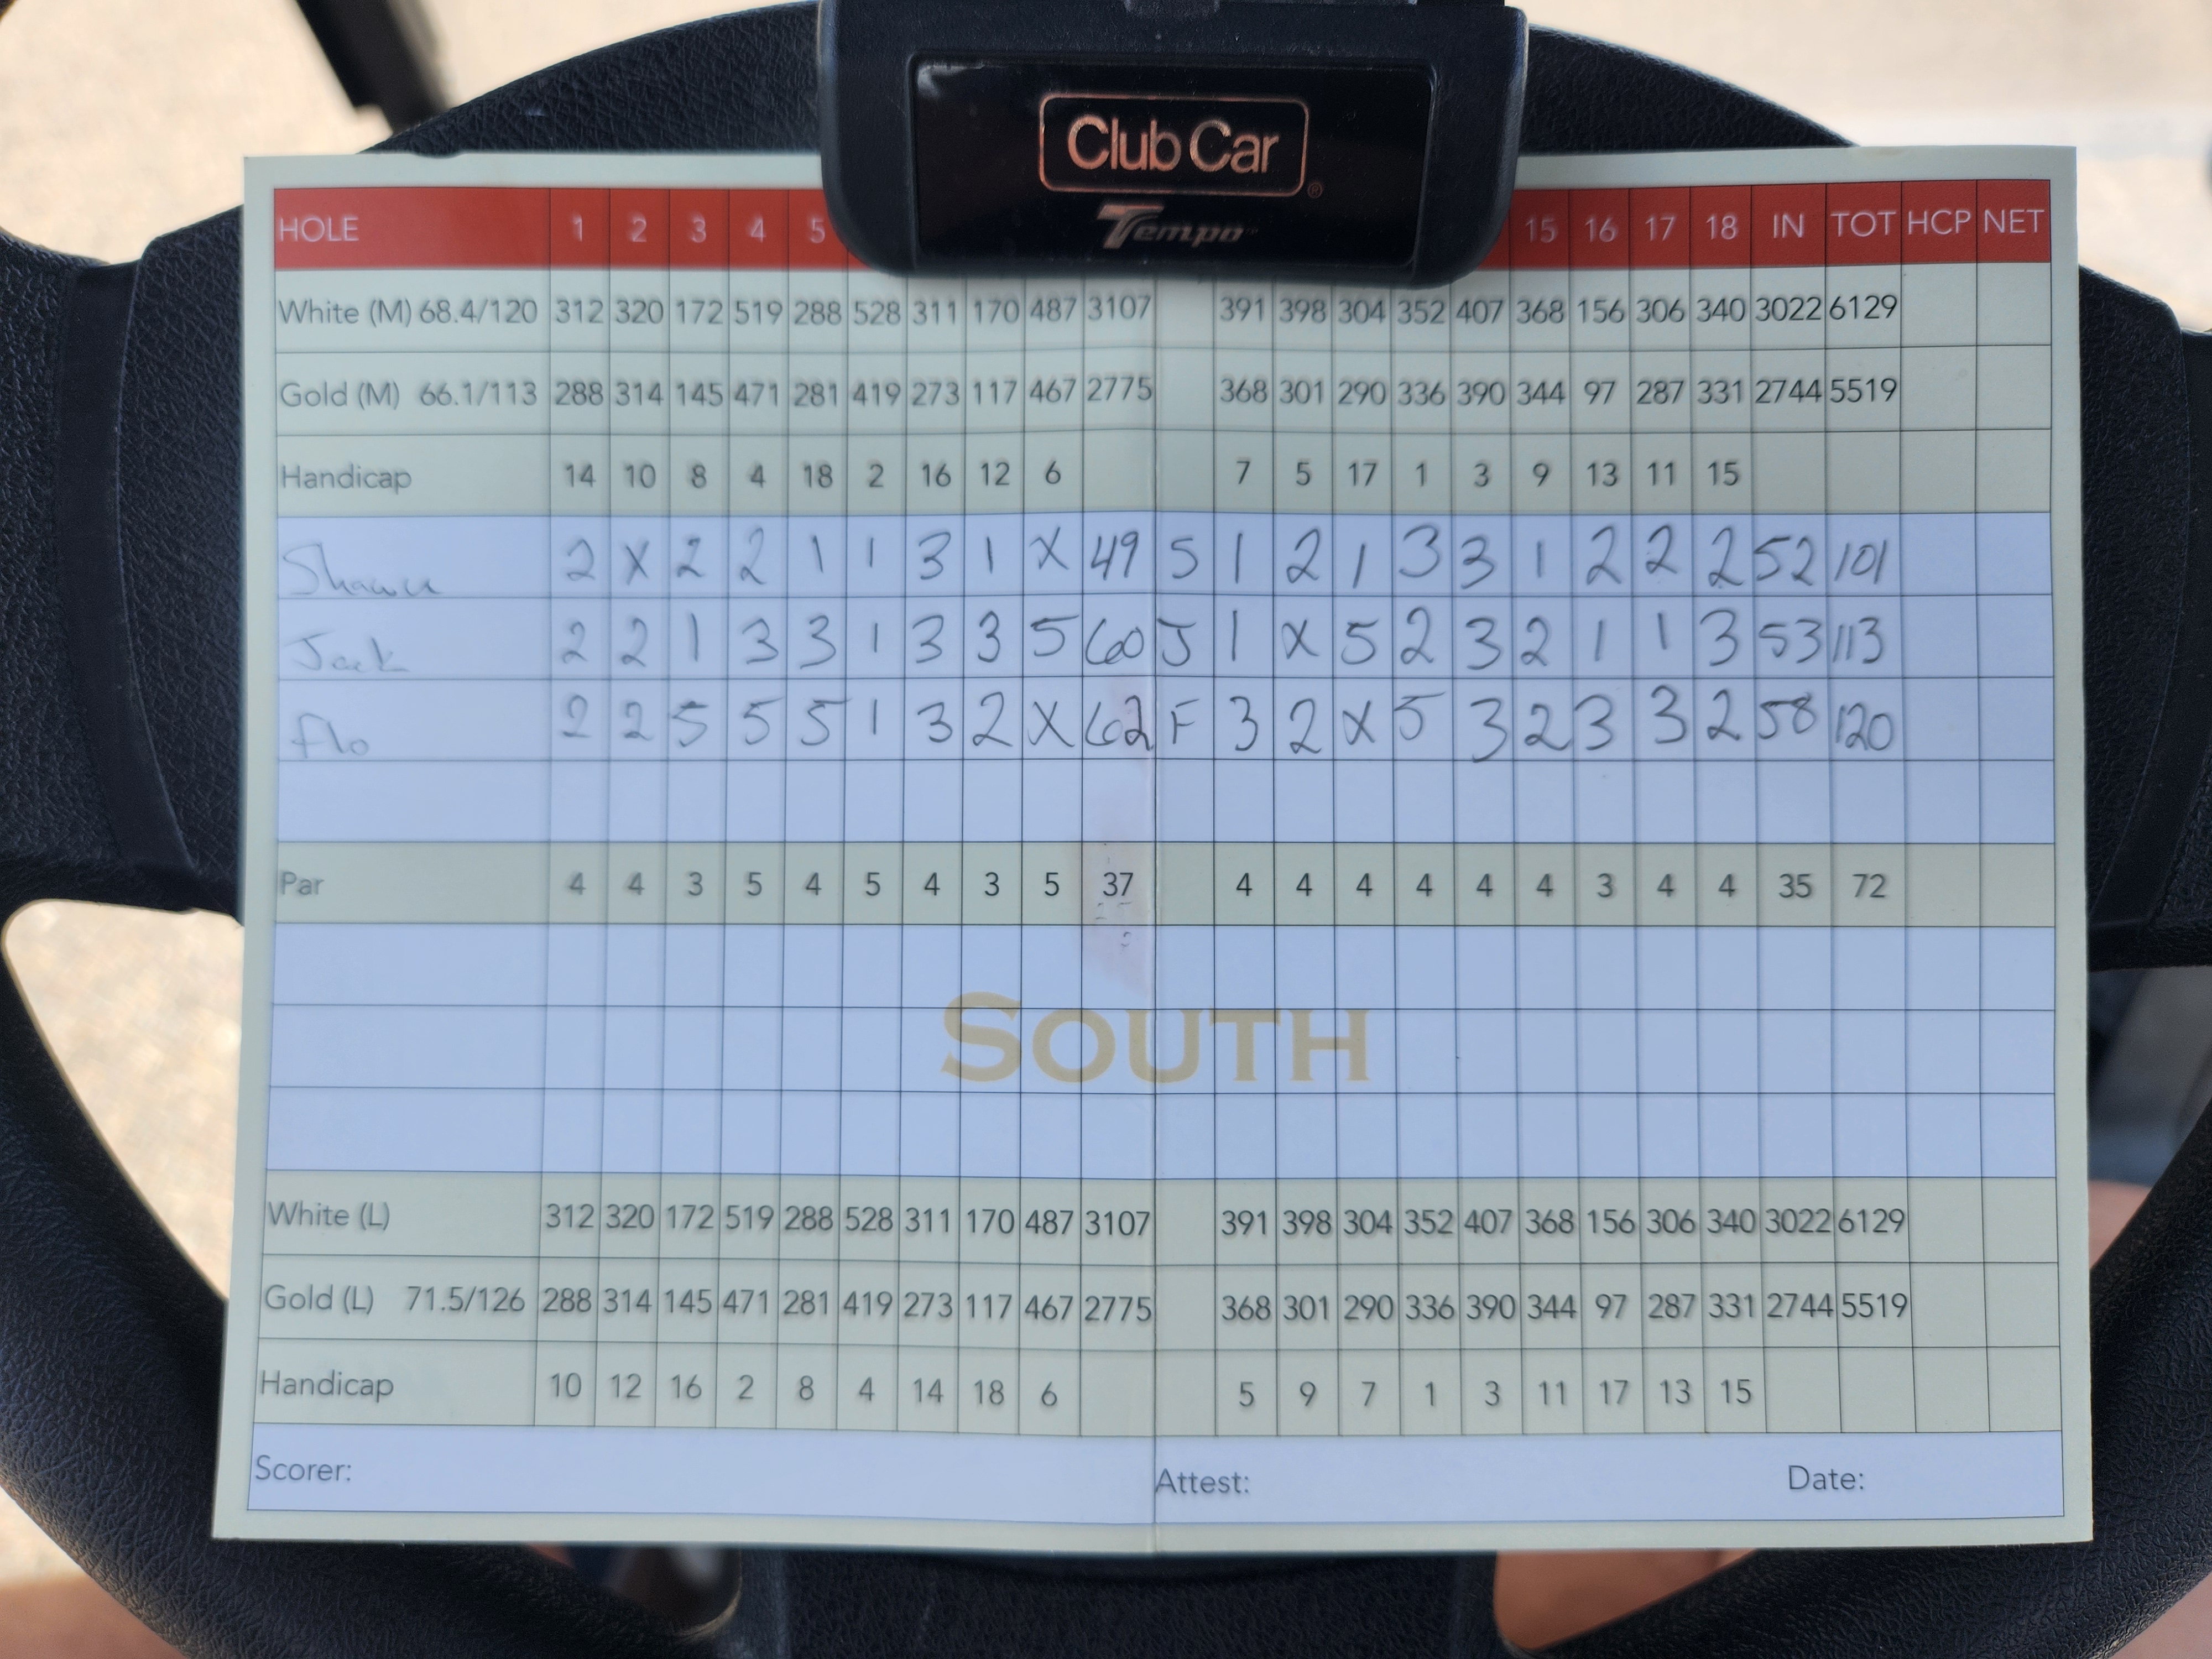 Club Car ®
Tempo
HOLE 1 2 3 4 5 15 16 17 18 IN TOT HCP NET
White (M) 68.4/120 312 320 172 519 288 528 311 170 487 3107 391 398 304 352 407 368 156 306 340 3022 6129
Gold (M) 66.1/113 288 314 145 471 281 419 273 117 467 2775 368 301 290 336 390 344 97 287 331 2744 5519
Handicap 14 10 8 4 18 2 16 12 6 7 5 17 1 3 9 13 11 15
Shawn 2 X 2 2 1 1 3 1 X 49 S 1 2 1 3 3 1 2 2 2 52 101
Jack 2 2 1 3 3 1 3 3 5 60 J 1 X 5 2 3 2 1 1 3 53 113
Flo 2 2 5 5 5 1 3 2 X 62 F 3 2 X 5 3 2 3 3 2 58 120
Par 4 4 3 5 4 5 4 3 5 37 4 4 4 4 4 4 3 4 4 35 72
SOUTH
White (L) 312 320 172 519 288 528 311 170 487 3107 391 398 304 352 407 368 156 306 340 3022 6129
Gold (L) 71.5/126 288 314 145 471 281 419 273 117 467 2775 368 301 290 336 390 344 97 287 331 2744 5519
Handicap 10 12 16 2 8 4 14 18 6 5 9 7 1 3 11 17 13 15
Scorer: Attest: Date: